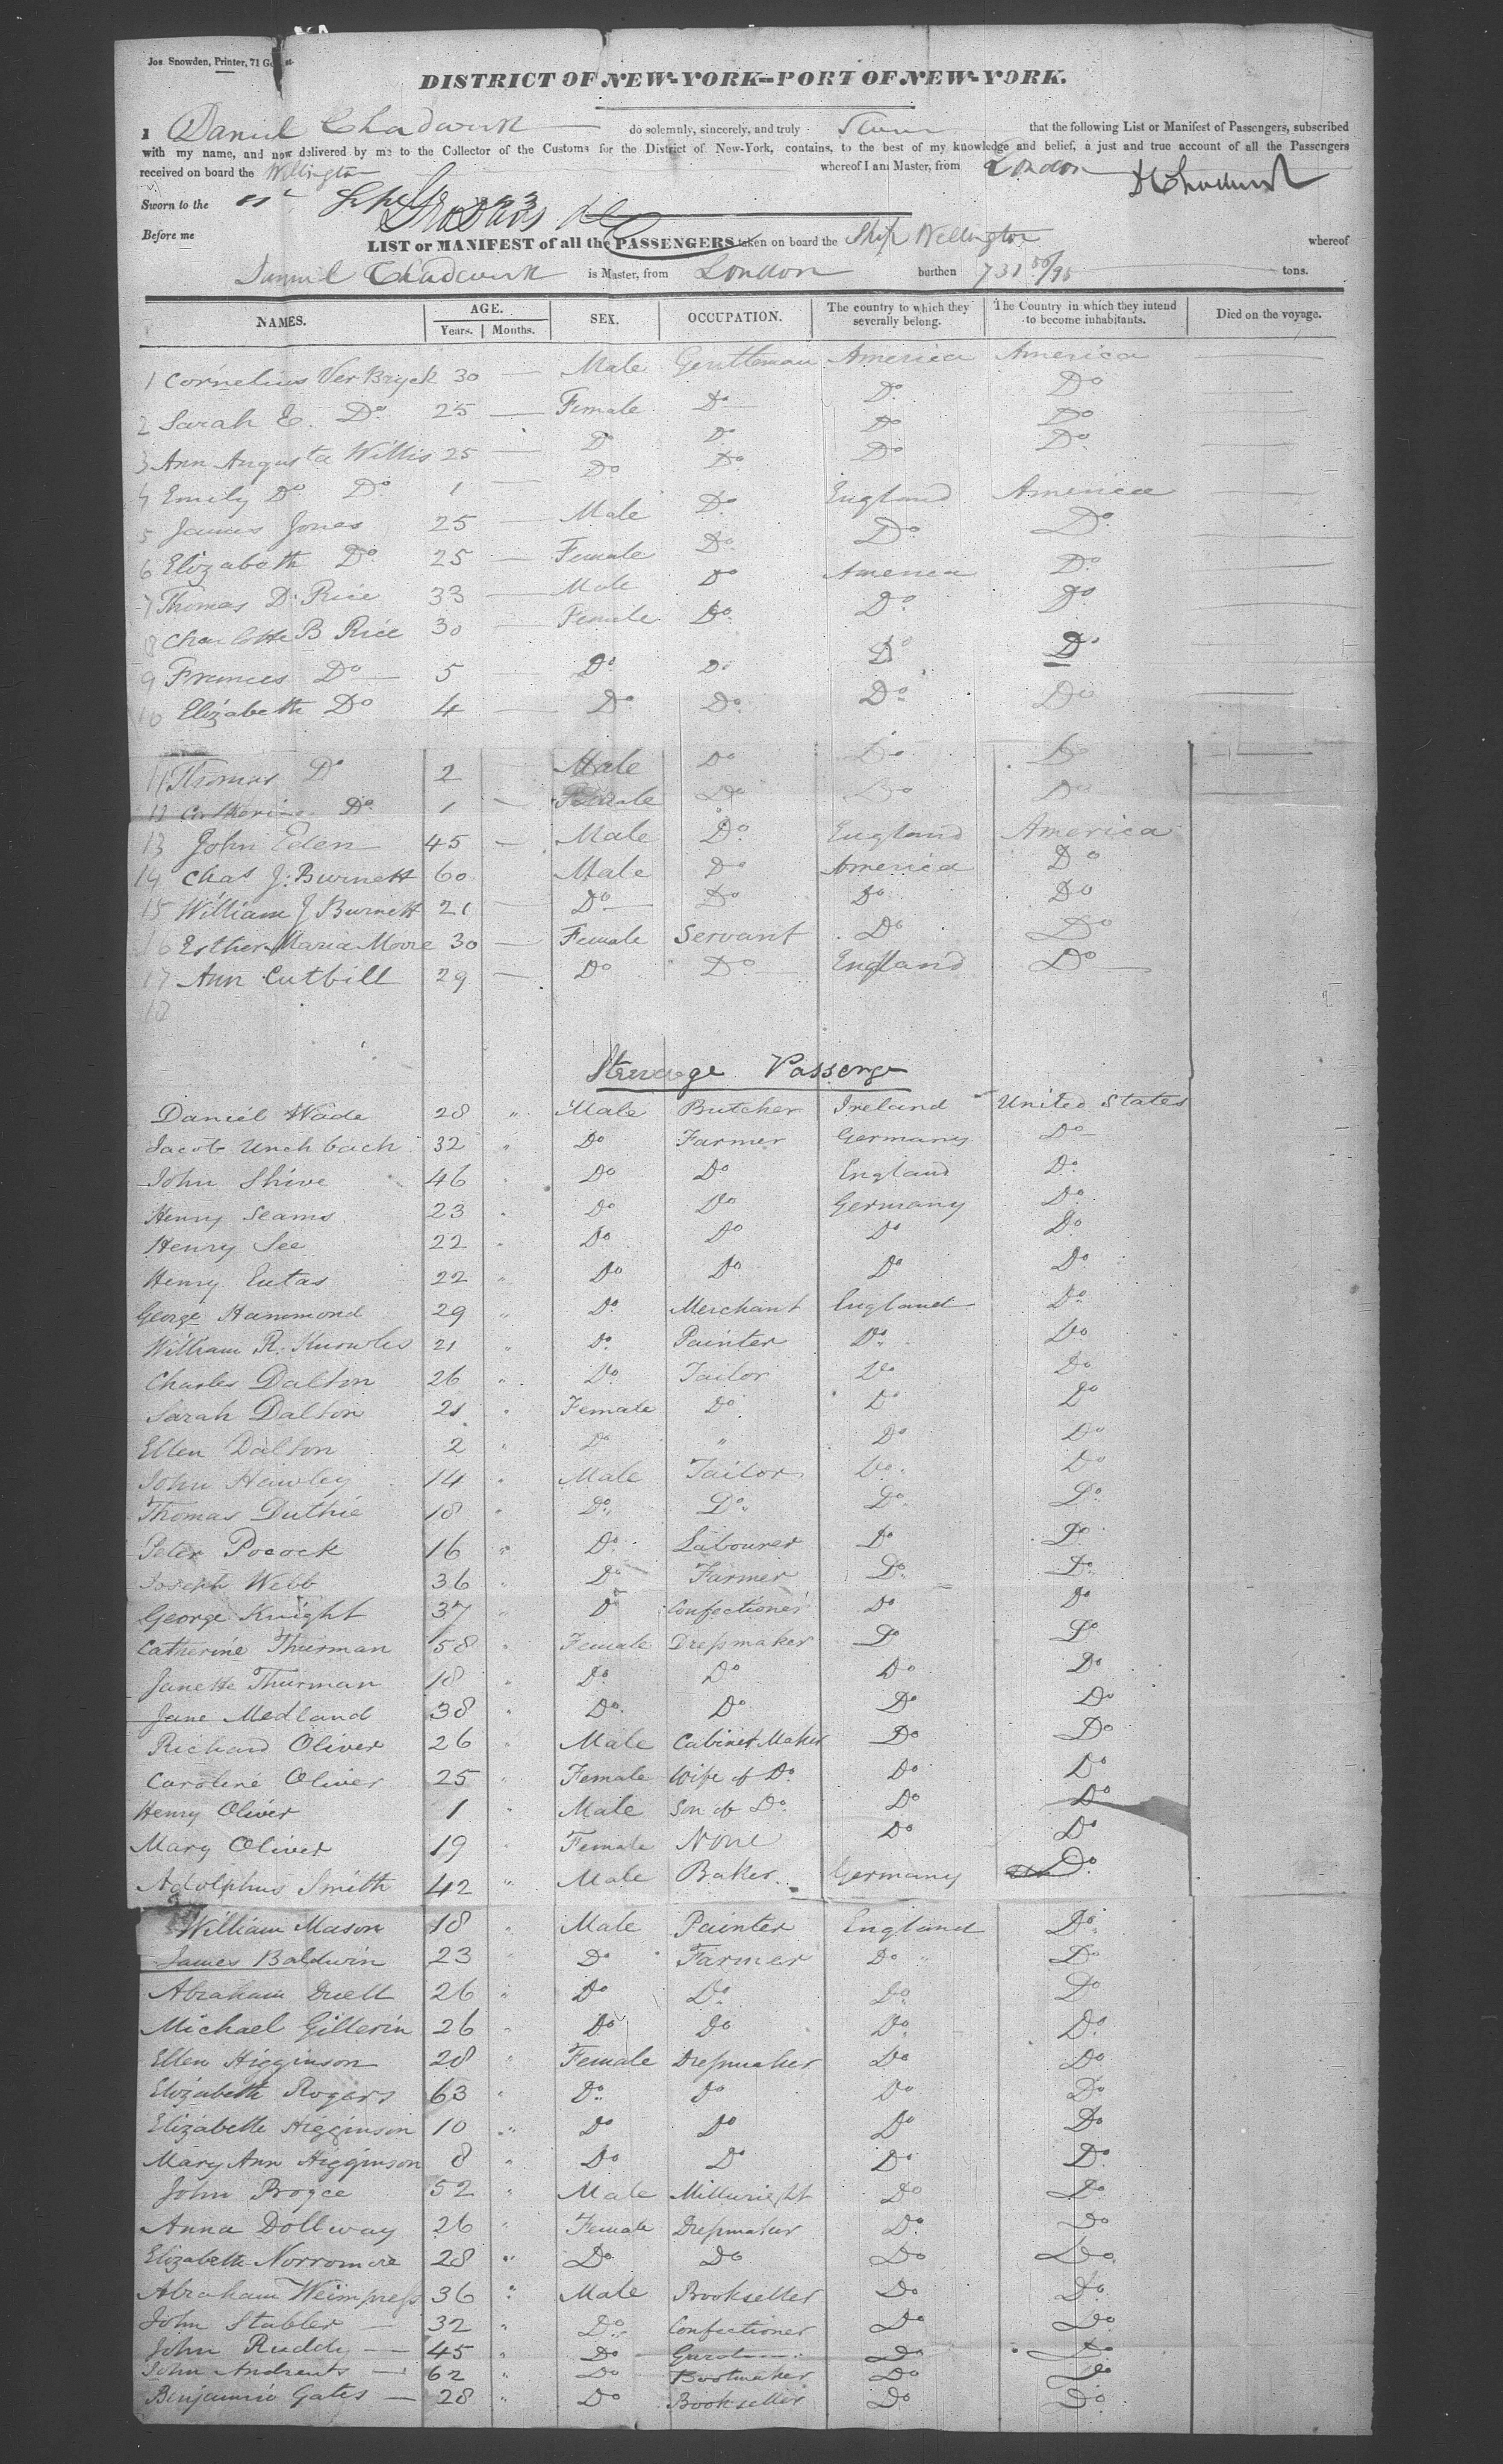 Jos Snowden, Printer, 71
DISTRICT OF NEW-YORK--PORT OF NEW-YORK.
I Daniel Chadwick do solemnly, sincerely, and truly Swear that the following List or Manifest of Passengers, subscribed
with my name, and now delivered by me to the Collector of the Customs for the District of New-York, contains, to the best of my knowledge and belief, a just and true account of all the Passengers
received on board the Wellington whereof I am Master, from London D Chadwick
Sworn to the
Before me
LIST or MANIFEST of all the PASSENGERS taken on board the Ship Wellington whereof
Daniel Chadwick is Master, from London burthen 731 56/95 tons.
NAMES. AGE. Years. Months. SEX. OCCUPATION. The country to which they severally belong. The Country in which they intend to become inhabitants. Died on the voyage.
1 Cornelius Ver Bryck 30 — Male Gentleman America America
2 Sarah E. Do 25 — Female Do Do Do
3 Ann Augusta Willis 25 — Do Do Do Do
4 Emily Do Do 1 — Do Do Do Do
5 James Jones 25 — Male Do England America
6 Elizabeth Do 25 — Female Do Do Do
7 Thomas D. Rice 33 — Male Do America Do
8 Charlotte B Rice 30 — Female Do Do Do
9 Frances Do 5 — Do Do Do Do
10 Elizabeth Do 4 — Do Do Do Do
11 Thomas Do 2 Male Do Do Do
12 Catherine Do 1 — Female Do Do Do
13 John Eden 45 — Male Do England America
14 Chas J. Burnett 60 Male Do America Do
15 William J Burnett 21 — Do Do Do Do
16 Esther Maria Moore 30 — Female Servant Do Do
17 Ann Cutbill 29 — Do Do England Do
18
Steerage Passenge
Daniel Wade 28 " Male Butcher Ireland United States
Jacob Unchbach 32 " Do Farmer Germany Do
John Shive 46 " Do Do England Do
Henry Seams 23 " Do Do Germany Do
Henry See 22 " Do Do Do Do
Henry Eutas 22 " Do Do Do Do
George Hammond 29 " Do Merchant England Do
William R. Knowles 21 " Do Painter Do Do
Charles Dalton 26 " Do Tailor Do Do
Sarah Dalton 21 " Female Do Do Do
Ellen Dalton 2 " Do " Do Do
John Hawley 14 " Male Tailor Do Do
Thomas Duthie 18 " Do Do Do Do
Peter Pocock 16 " Do Labourer Do Do
Joseph Webb 36 " Do Farmer Do Do
George Knight 37 " Do Confectioner Do Do
Catherine Thurman 58 " Female Dressmaker Do Do
Janette Thurman 18 " Do Do Do Do
Jane Medland 38 " Do Do Do Do
Richard Oliver 26 " Male Cabinet Maker Do Do
Caroline Oliver 25 " Female Wife of Do Do Do
Henry Oliver 1 " Male Son of Do Do Do
Mary Oliver 19 " Female None Do Do
Adolphus Smith 42 " Male Baker Germany Do
William Mason 18 " Male Painter England Do
James Baldwin 23 " Do Farmer Do Do
Abraham Duell 26 " Do Do Do Do
Michael Gillerin 26 " Do Do Do Do
Ellen Higginson 28 " Female Dressmaker Do Do
Elizabeth Rogers 63 " Do Do Do Do
Elizabeth Higginson 10 " Do Do Do Do
Mary Ann Higginson 8 " Do Do Do Do
John Broyce 52 " Male Millwright Do Do
Anna Dollway 26 " Female Dressmaker Do Do
Elizabeth Norromore 28 " Do Do Do Do
Abraham Weimpress 36 " Male Bookseller Do Do
John Stabler 32 " Do Confectioner Do Do
John Ruddy — 45 " Do Do Do
John Andrews — 62 " Do Bootmaker Do Do
Benjamin Gates — 28 " Do Bookseller Do Do